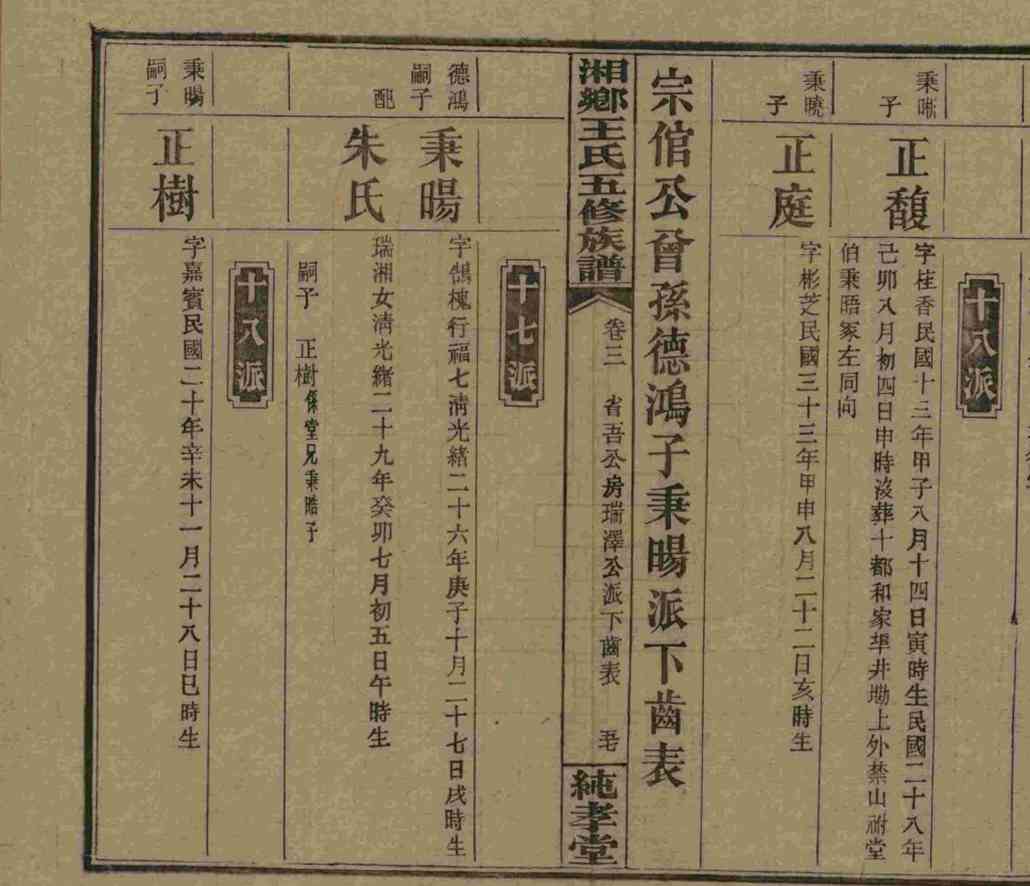 十八派
秉晰
子
正馥
字桂香民國十三年甲子八月十四日寅時生民國二十八年
己卯八月初四日申時沒葬十都和家垏井坳上外禁山祔堂
伯秉晤冢左同向
秉曉
子
正庭
字彬芝民國三十三年甲申八月二十二日亥時生
宗倌公曾孫德鴻子秉暘派下齒表
湘鄉王氏五修族譜
卷三
省吾公房瑞澤公派下齒表
純孝堂
十七派
德鴻
嗣子
秉暘
字鵠槐行福七清光緒二十六年庚子十月二十七日戌時生
配
朱氏
瑞湘女清光緒二十九年癸卯七月初五日午時生
嗣子 正樹係堂兄秉晧子
十八派
秉暘
嗣子
正樹
字嘉賓民國二十年辛未十一月二十八日巳時生